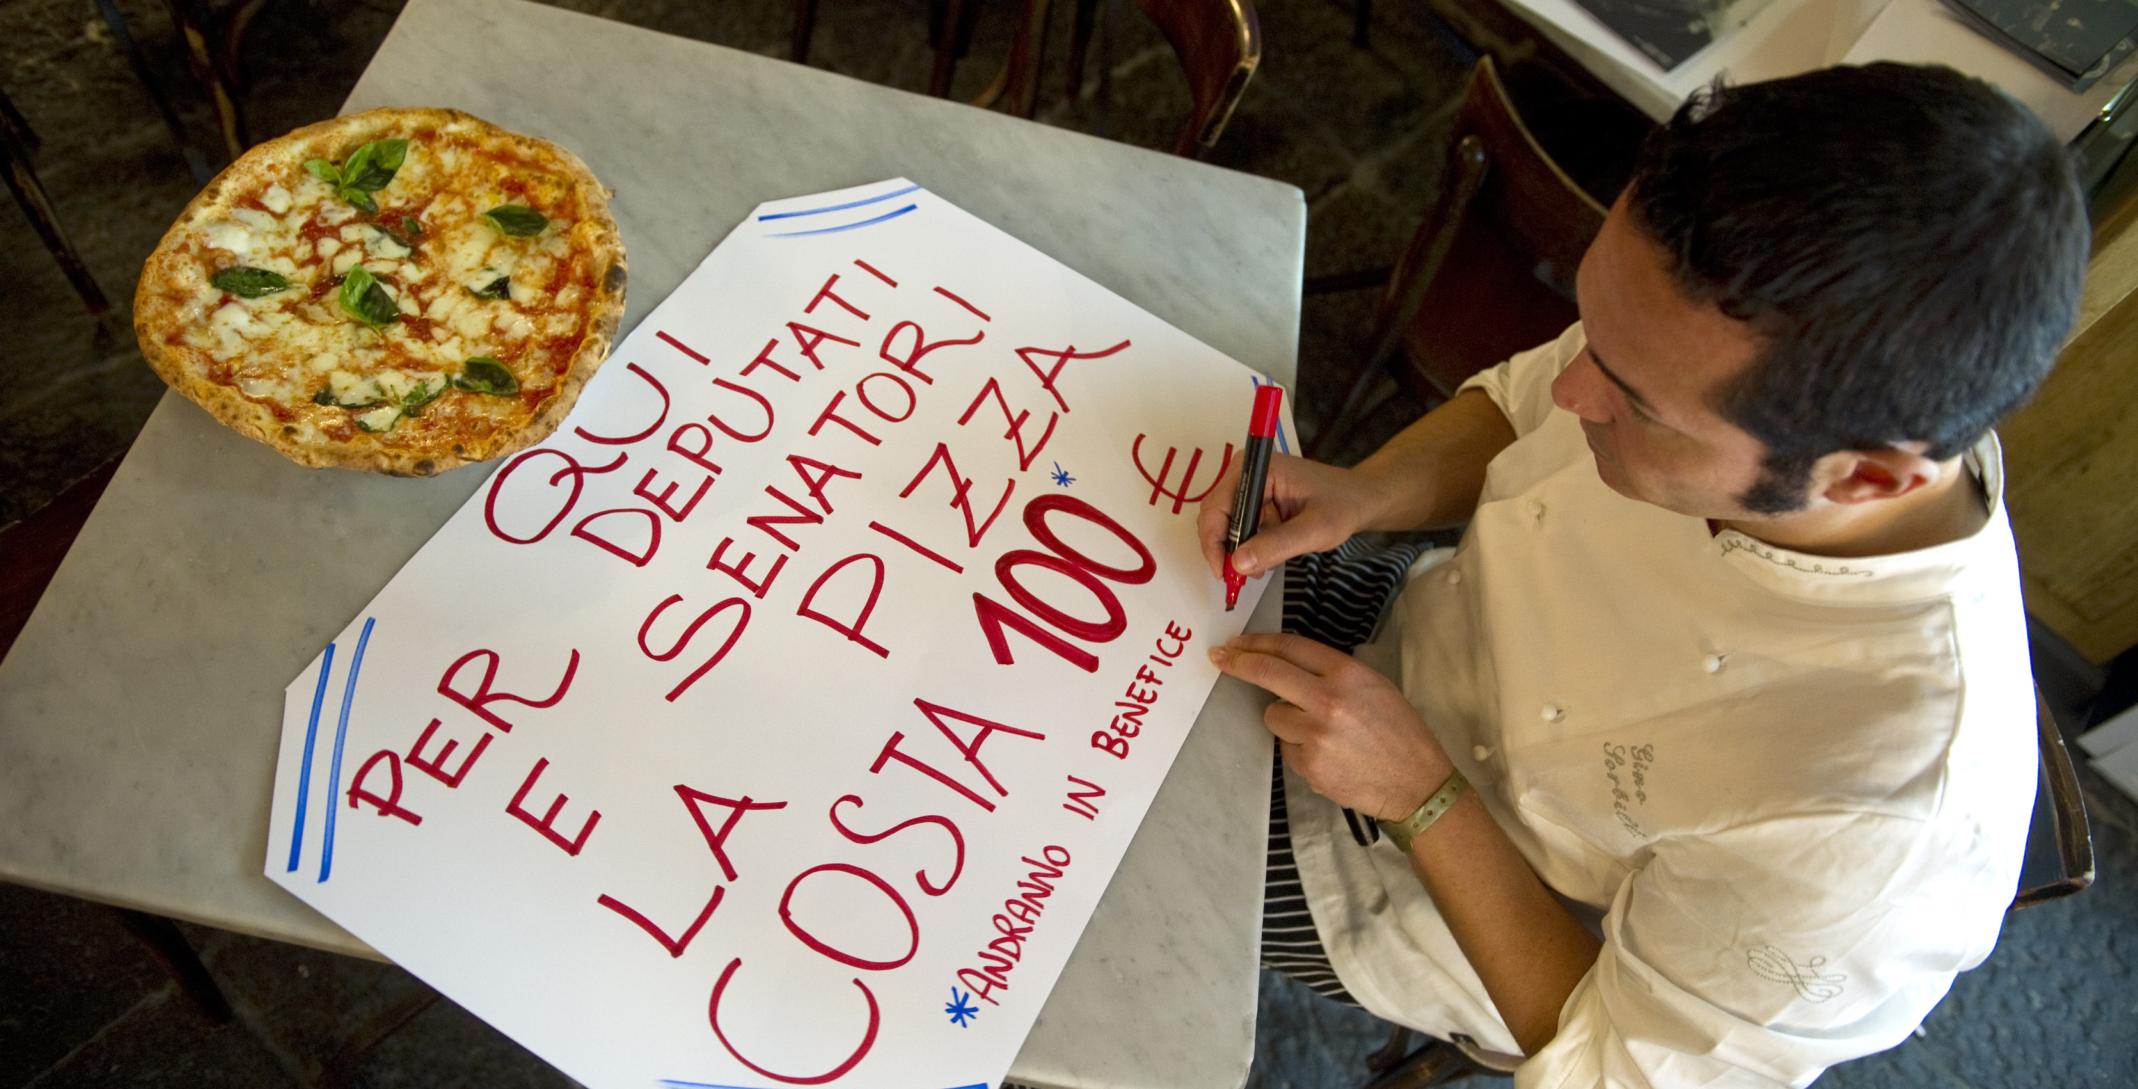 QUI
PER DEPUTATI
E SENATORI
LA PIZZA
COSTA 100* €
*ANDRANNO IN BENEFICE
Gino
Sorbillo